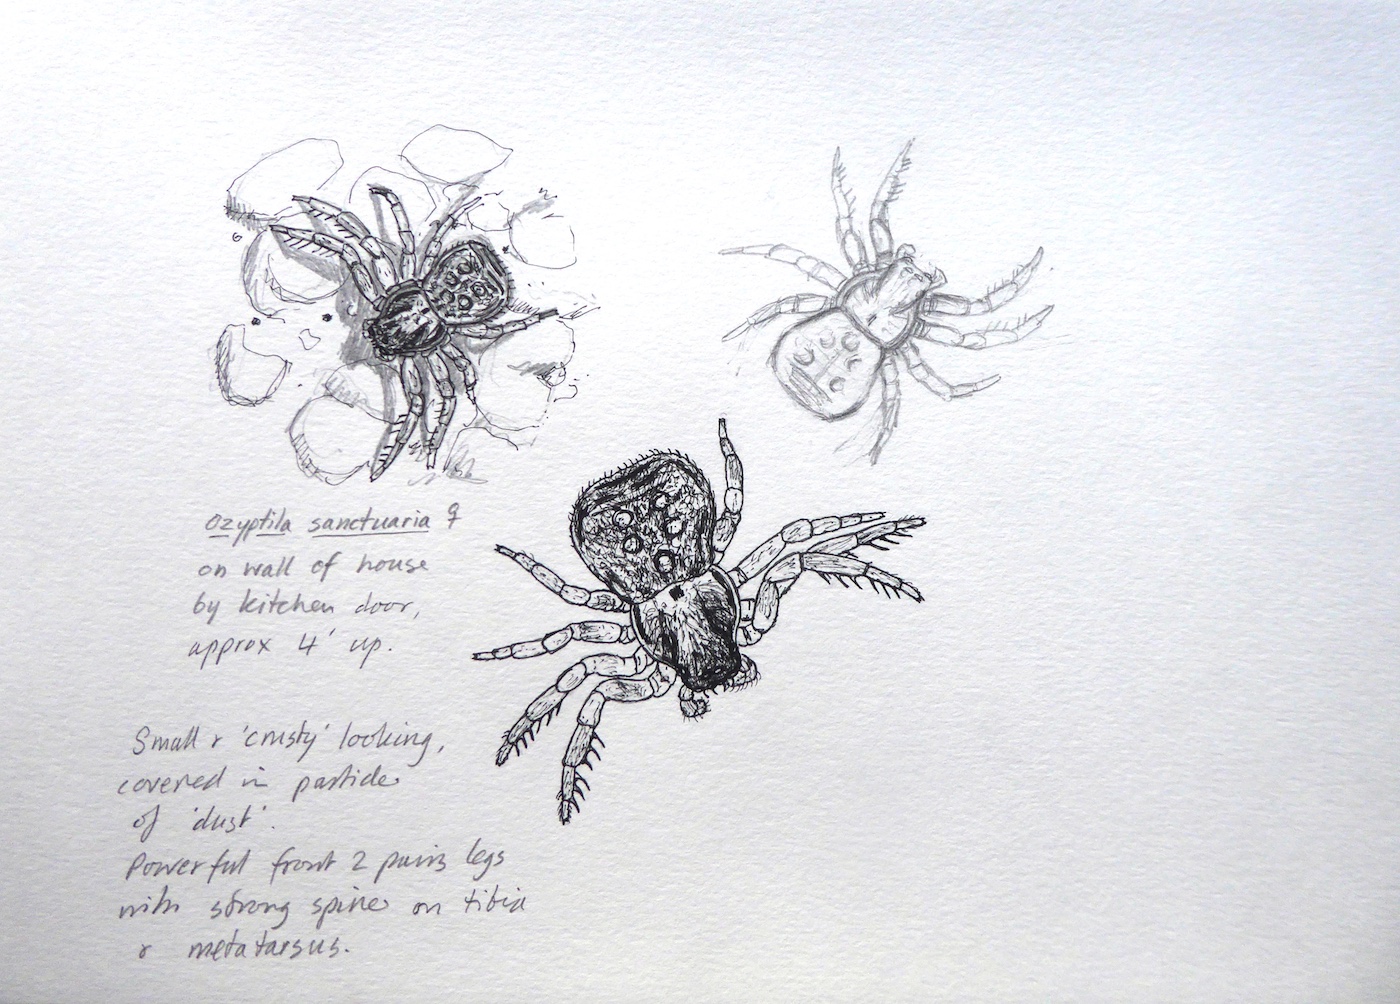 Ozyptila sanctuaria ♀
on wall of house
by kitchen door,
approx 4' up.
Small & 'crusty' looking,
covered in particles
of 'dust'.
Powerful front 2 pairs legs
with strong spines on tibia
& metatarsus.